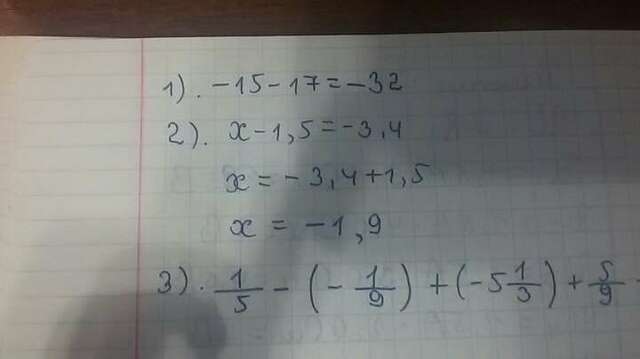 1). -15-17=-32
2). x-1,5=-3,4
x=-3,4+1,5
x = -1,9
3). 1/5 - (- 1/9) + (-5 1/3) + 5/9 -